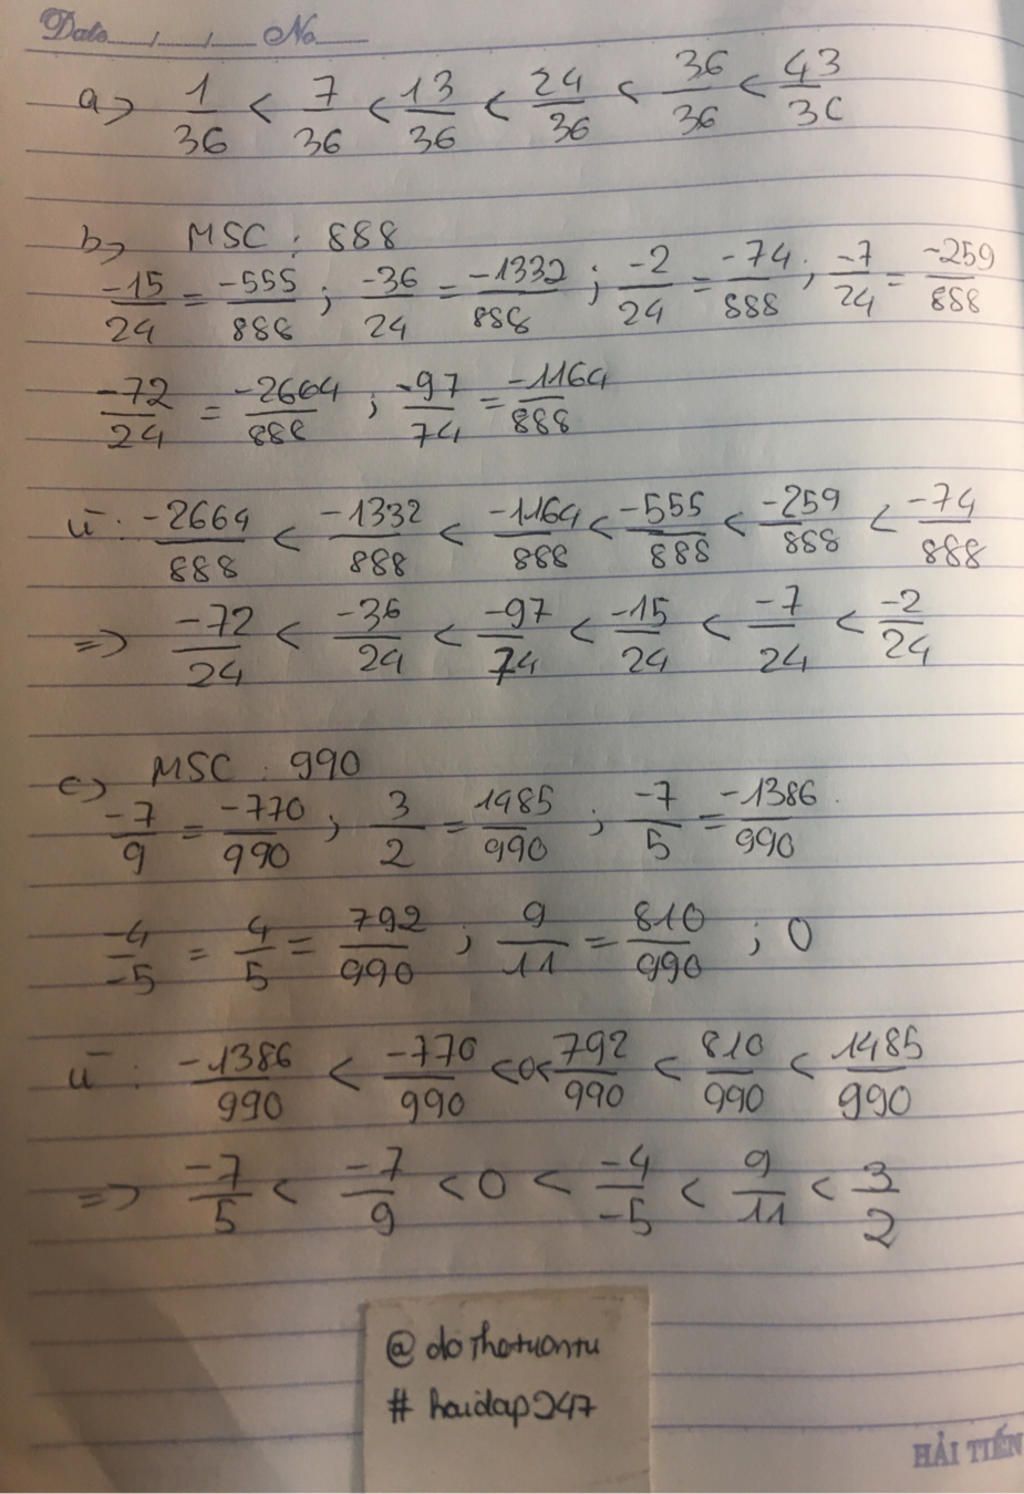 Date___/___/___ No____
a> 1/36 < 7/36 < 13/36 < 24/36 < 36/36 < 43/36
b> MSC : 888
-15/24 = -555/888 ; -36/24 = -1332/888 ; -2/24 = -74/888 ; -7/24 = -259/888
-72/24 = -2664/888 ; -97/74 = -1164/888
Vì : -2664/888 < -1332/888 < -1164/888 < -555/888 < -259/888 < -74/888
=> -72/24 < -36/24 < -97/74 < -15/24 < -7/24 < -2/24
c> MSC : 990
-7/9 = -770/990 ; 3/2 = 1485/990 ; -7/5 = -1386/990
-4/-5 = 4/5 = 792/990 ; 9/11 = 810/990 ; 0
Vì : -1386/990 < -770/990 <0< 792/990 < 810/990 < 1485/990
=> -7/5 < -7/9 < 0 < -4/-5 < 9/11 < 3/2
# hoidap247
HẢI TIẾN